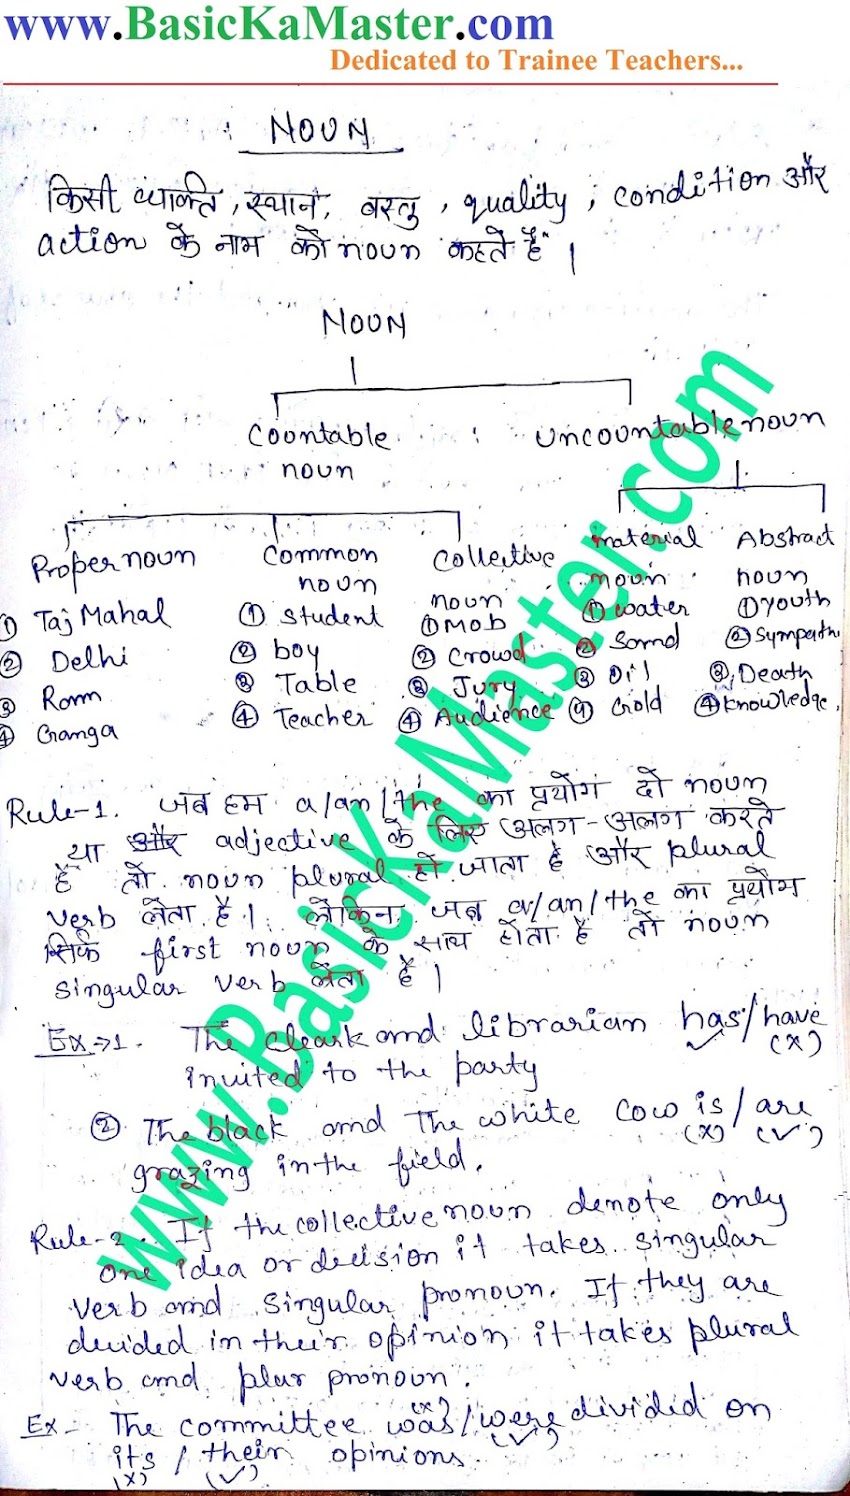 www.BasicKaMaster.com
Dedicated to Trainee Teachers...
NOUN
किसी व्यक्ति, स्थान, वस्तु, quality, condition और
action के नाम को noun कहते हैं"।
NOUN
Countable noun
uncountable noun
Proper noun
① Taj Mahal
② Delhi
③ Ram
④ Ganga
Common noun
① Student
② boy
③ Table
④ Teacher
Collective noun
① Mob
② Crowd
③ Jury
④ Audience
material noun
① water
② Sand
③ Oil
④ Gold
Abstract noun
① youth
② Sympath
③ Death
④ knowledge.
Rule-1. जब हम a/an/the का प्रयोग दो noun
या और adjective के लिए अलग-अलग करते
हैं तो noun plural हो जाता है और plural
verb लेता है। लेकिन जब a/an/the का प्रयोग
सिर्फ first noun के साथ होता है तो noun
singular verb लेता है।
Ex⇒1. The cleark and librarian has/have
✓ (x)
invited to the party
② The black and The white cow is/are
(x) (✓)
grazing in the field.
Rule-2. If the collective noun denote only
one idea or decision it takes singular
verb and singular pronoun. If they are
divided in their opinion it takes plural
verb and plur pronoun.
Ex- The committee was/were divided on
(x) (✓)
its / their opinions.
(x) (✓)
www.BasicKaMaster.com